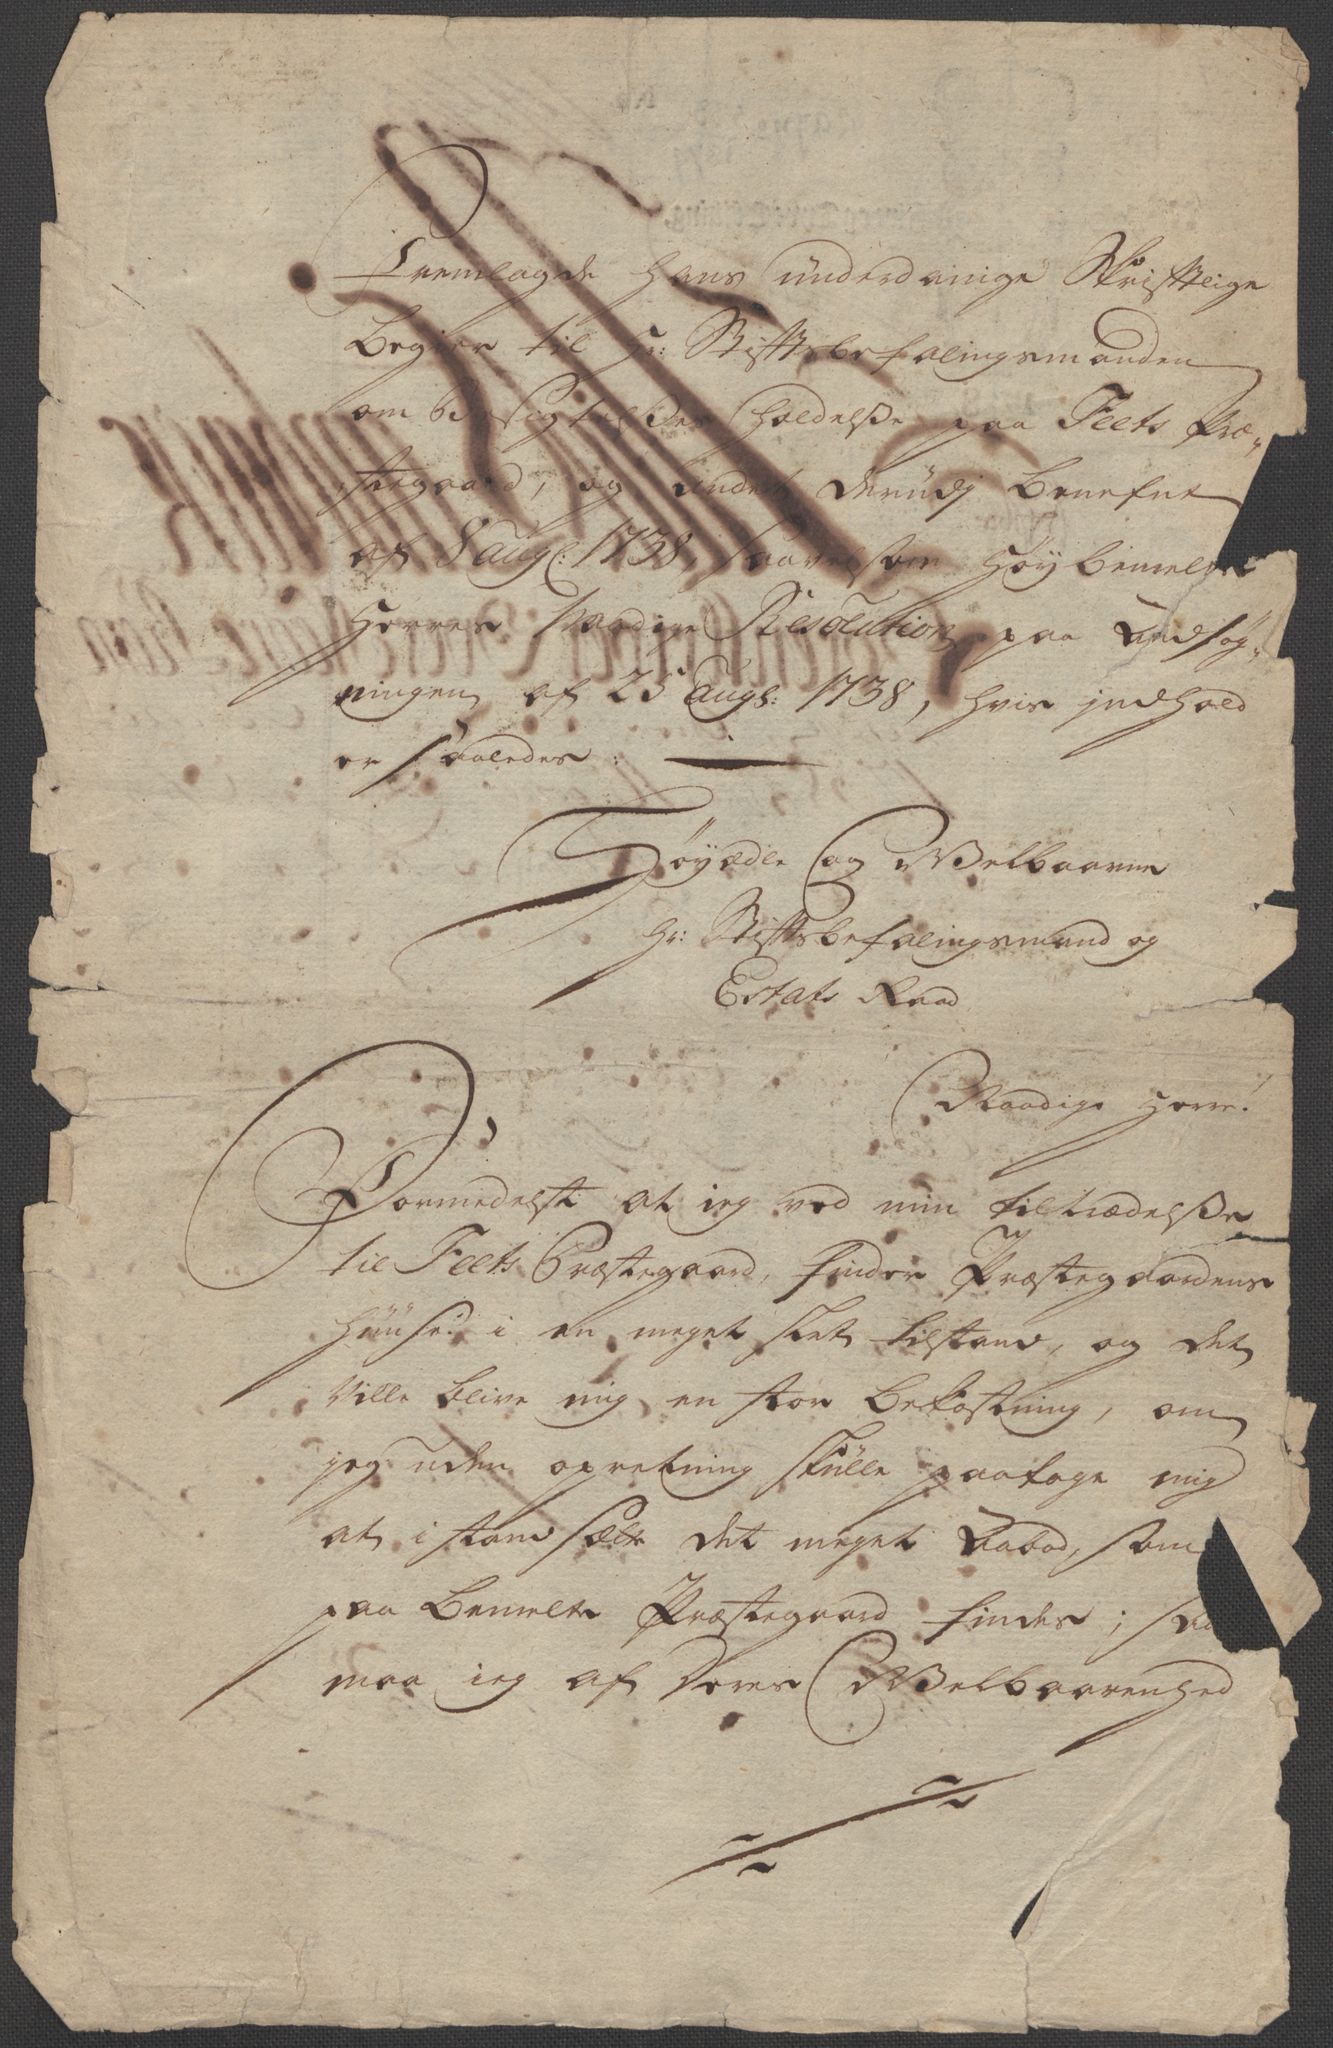 Fremlagde hans underdanige Skrifftlige
Begier til Hr: Stifftsbefalingsmanden
om Besigtelses Holdelse paa Feets Præ-
stegaard, og andet derudj Benefnt
af 8 aug: 1738, saavelsom Høybemelte
Herres Naadige Resolution paa Ansøg-
ningen af 25 Augs: 1738, hvis jndhold
er saaledes:
Høyædle og Welbaarne
Hr: Stifftsbefalingsmand og
Estats Raad
Naadige Herre!
Formedelst at ieg ved min tiltrædelse
til Feets Præstegaard, finder Præstegaardens
Huuse i en meget slet tilstand, og det
ville blive mig en stor Bekostning, om
jeg uden opretning skulle paatage mig
at i stand sætte det meget Aabod, som
paa Bemelte Præstegaard findes; saa
maa ieg af Deres Welbaarenhed